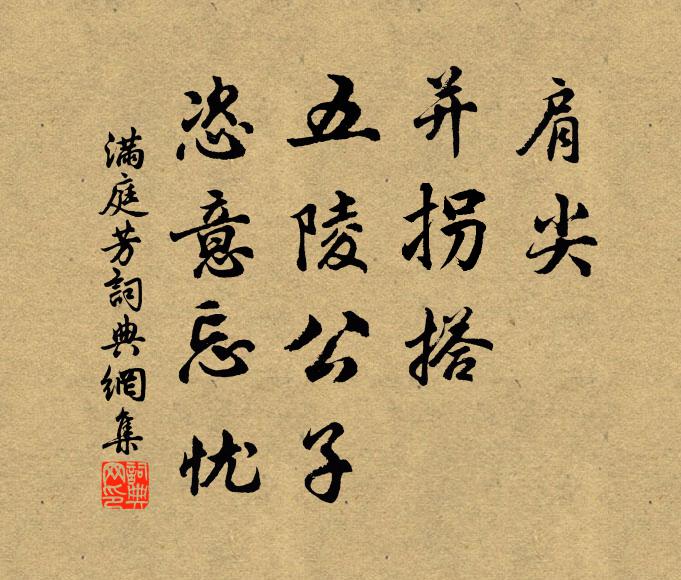 肩尖
并拐搭
五陵公子
恣意忘忧
满庭芳詞典網集
詞典
网印